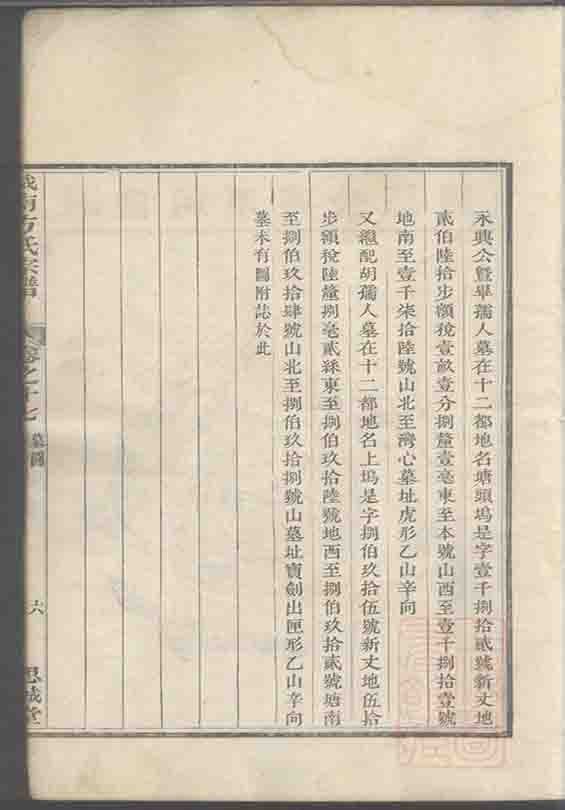 永興公曁畢孺人墓在十二都地名塘頭塢是字壹千捌拾貳號新丈地
貳伯陸拾步額稅壹畝壹分捌釐壹毫東至本號山西至壹千捌拾壹號
地南至壹千柒拾陸號山北至灣心墓址虎形乙山辛向
又繼配胡孺人墓在十二都地名上塢是字捌伯玖拾伍號新丈地伍拾
步額稅陸釐捌毫貳絲東至捌伯玖拾陸號地西至捌伯玖拾貳號塘南
至捌伯玖拾肆號山北至捌伯玖拾捌號山墓址寶劍出匣形乙山辛向
墓未有圖附誌於此
南方氏宗譜
卷之十七
墓圖
六
思誠堂